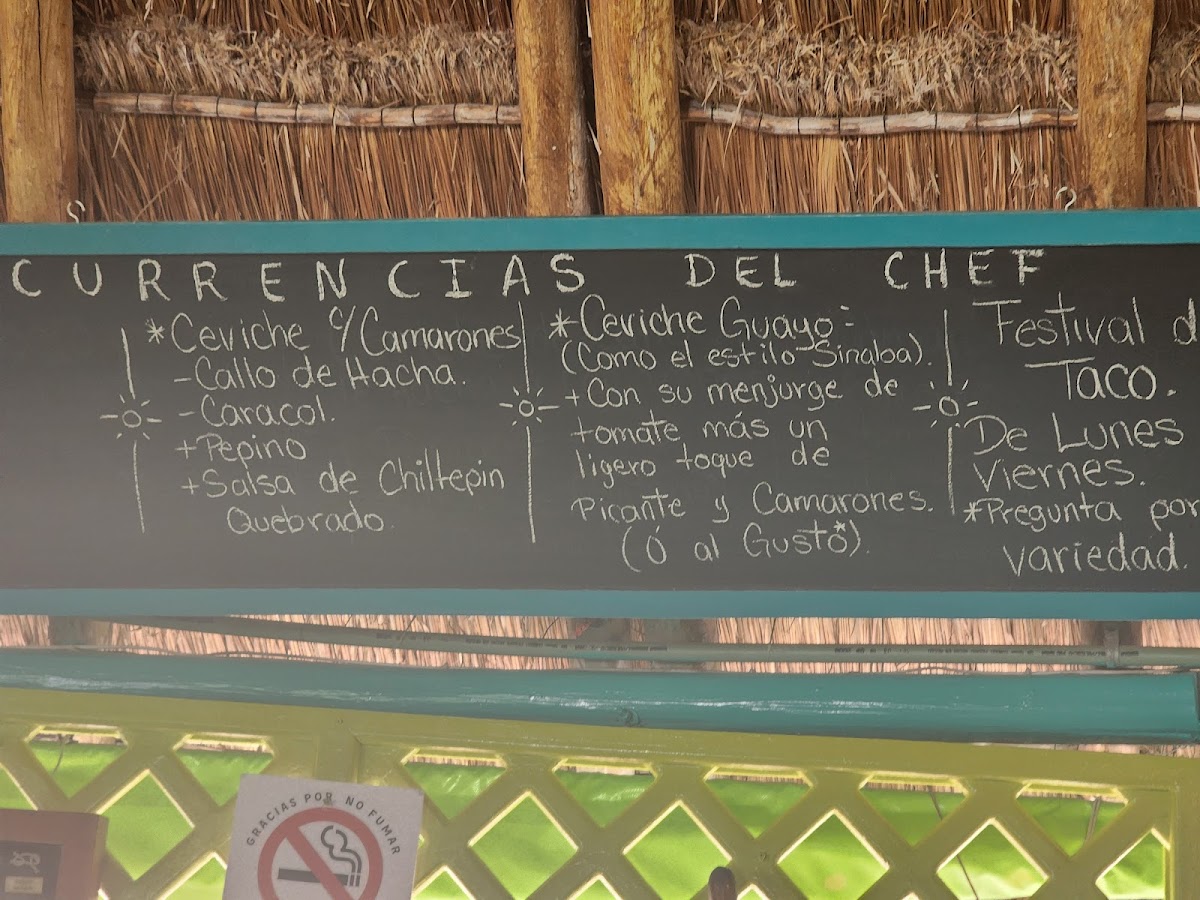 CURRENCIAS DEL CHEF
*Ceviche c/Camarones
-Callo de Hacha.
-Caracol.
+Pepino
+Salsa de Chiltepin
Quebrado.
*Ceviche Guayo:
(Como el estilo Sinaloa).
+Con su menjurge de
tomate más un
ligero toque de
Picante y Camarones.
(Ó al Gusto*).
Festival d
Taco.
De Lunes
Viernes.
*Pregunta por
variedad.
GRACIAS POR NO FUMAR